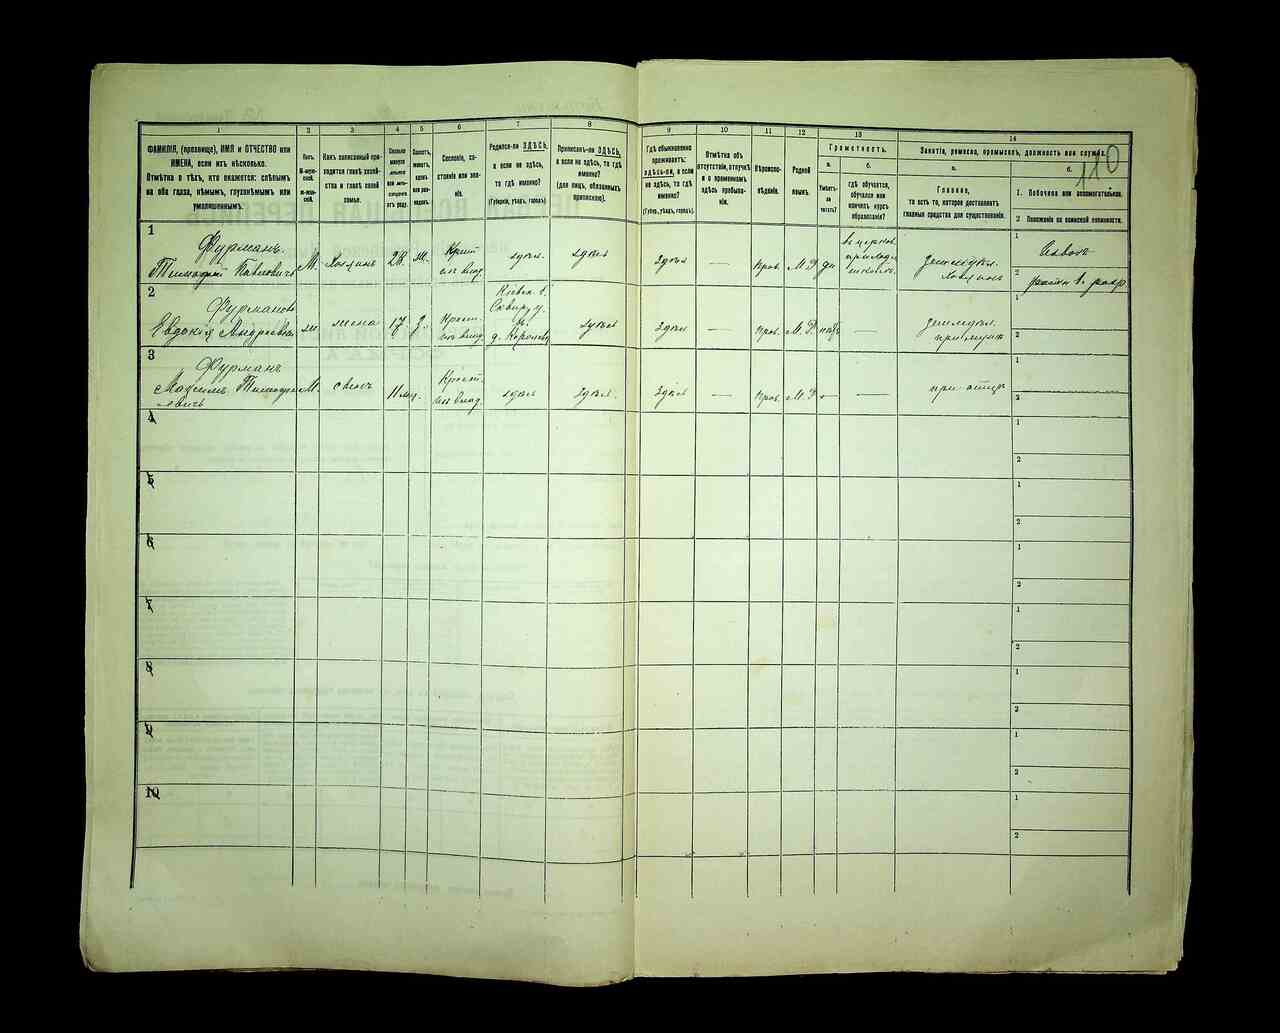 110
1
2
3
4
5
6
7
8
9
10
11
12
13
14
ФАМИЛІЯ, (прозвище), ИМЯ и ОТЧЕСТВО или
ИМЕНА, если ихъ нѣсколько.
Отмѣтка о тѣхъ, кто окажется: слѣпымъ
на оба глаза, нѣмымъ, глухонѣмымъ или
умалишеннымъ.
Полъ.
М-муж-
ской.
Ж-жен-
скій.
Какъ записанный при-
ходится главѣ хозяй-
ства и главѣ своей
семьи.
Сколько
минуло
лѣтъ
или мѣся-
цевъ
отъ роду.
Холостъ,
женатъ,
вдовъ
или раз-
веденъ.
Сословіе, со-
стояніе или зва-
ніе.
Родился-ли ЗДѢСЬ,
а если не здѣсь,
то гдѣ именно?
(Губернія, уѣздъ, городъ).
Приписанъ-ли ЗДѢСЬ,
а если не здѣсь, то гдѣ
именно?
(для лицъ, обязанныхъ
припискою).
Гдѣ обыкновенно
проживаетъ:
здѣсь-ли, а если
не здѣсь, то гдѣ
именно?
(Губер., уѣздъ, городъ).
Отмѣтка объ
отсутствіи, отлучкѣ
и о временномъ
здѣсь пребыва-
ніи.
Вѣроиспо-
вѣданіе.
Родной
языкъ.
Грамотность.
а.
Умѣетъ-
ли
читать?
б.
гдѣ обучается,
обучался или
кончилъ курсъ
образованія?
Занятіе, ремесло, промыселъ, должность или служба.
а.
Главное,
то есть то, которое доставляетъ
главныя средства для существованія.
б.
1. Побочное или вспомогательное.
2 Положеніе по воинской повинности.
1
Фурманъ
Тимофей Павловичъ
М.
Хозяинъ
Ж.
Крест.
изъ влад.
здѣсь
здѣсь
здѣсь
—
Прав.
М. Р
да
земледѣл.
хозяинъ
1
2
2
Фурманова
Евдокія Андреевна
ж
жена
17
З.
Крест.
изъ влад.
Кіевск. г.
Сквир. у.
здѣсь
здѣсь
—
Прав.
М. Р
—
земледѣл.
при мужѣ
1
2
3
Фурманъ
Максимъ Тимофее-
вичъ
М.
сынъ
11 мц.
Крест.
изъ влад.
здѣсь
здѣсь
здѣсь
—
Прав.
М. Р
—
—
при отцѣ
1
2
4
1
2
5
1
2
6
1
2
7
1
2
8
1
2
9
1
2
10
1
2